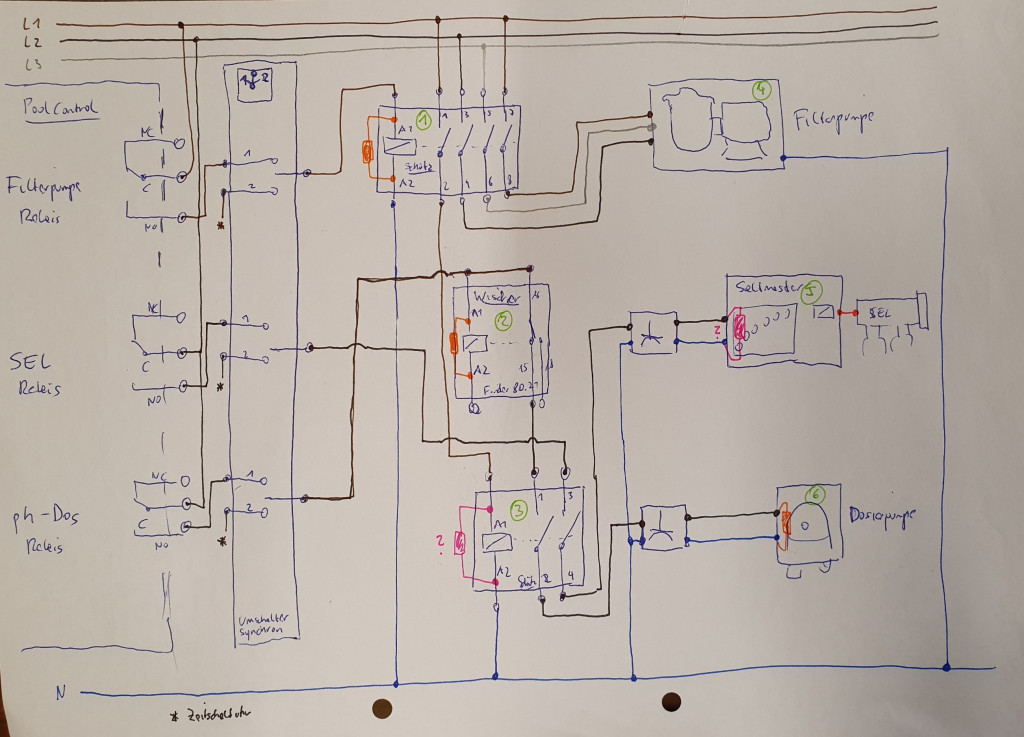 L1
L2
L3
Pool Control
NC
C
NO
Filterpumpe
Relais
NC
C
NO
SEL
Relais
NC
C
NO
ph-Dos
Relais
1 2
1
2
*
1
2
*
1
2
*
Umschalter
synchron
1
A1
1 3 5 7
Schütz
A2
2 4 6 8
4
Filterpumpe
Wischer
16
A1
2
A2
15
18
Finder 80.21
Seltmaster
5
?
SEL
3
1 3
A1
?
A2
2 4
6
Dosierpumpe
N
* Zeitschaltuhr